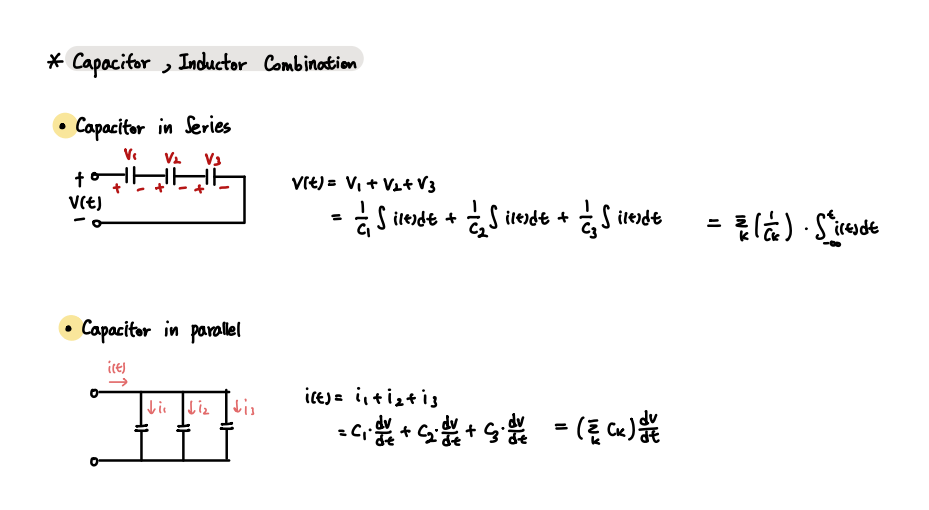 * Capacitor , Inductor Combination
• Capacitor in Series
V1 V2 V3
+ + - + - + -
V(t)
-
V(t) = V1 + V2 + V3
= 1/C1 ∫ i(t)dt + 1/C2 ∫ i(t)dt + 1/C3 ∫ i(t)dt = Σk (1/Ck) · ∫-∞^t i(t)dt
• Capacitor in parallel
i(t)
→
↓i1 ↓i2 ↓i3
i(t) = i1 + i2 + i3
= C1· dv/dt + C2· dv/dt + C3· dv/dt = (Σk Ck) dv/dt